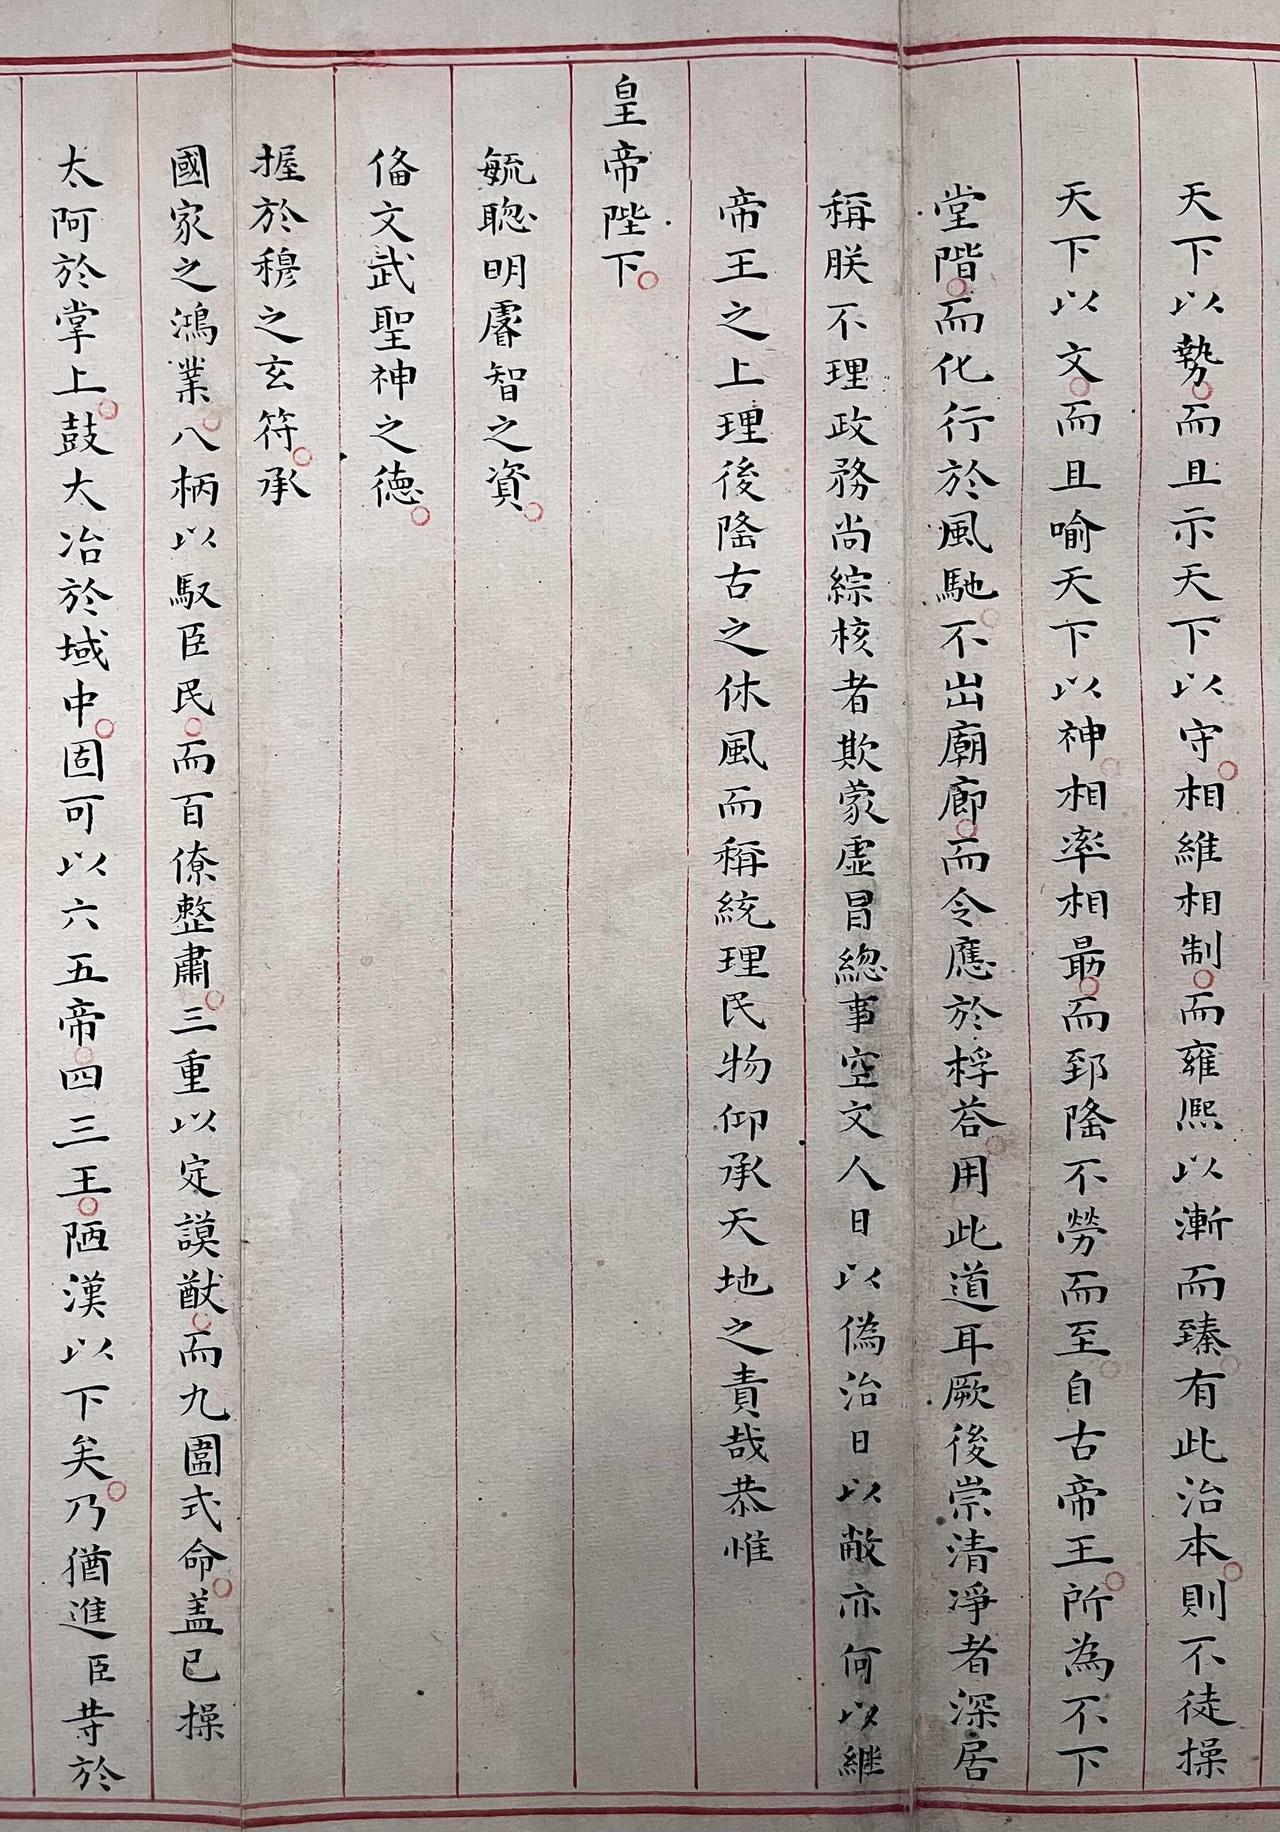 天下以勢而且示天下以守相維相制而雍熈以漸而臻有此治本則不徒操
天下以文而且喻天下以神相率相最而郅隆不勞而至自古帝王所為不下
堂階而化行於風馳不出廟廊而令應於桴荅用此道耳厥後崇清凈者深居
稱朕不理政務尚綜核者欺蒙虛冒總事空文人日以偽治日以敝亦何以繼
帝王之上理後隆古之休風而稱統理民物仰承天地之責哉恭惟
皇帝陛下
毓聰明睿智之資
俻文武聖神之徳
握於穆之玄符承
國家之鴻業八柄以馭臣民而百僚整肅三重以定謨猷而九圍式命盖已操
太阿於掌上鼓大冶於域中固可以六五帝四三王陋漢以下矣乃猶進臣䓁於